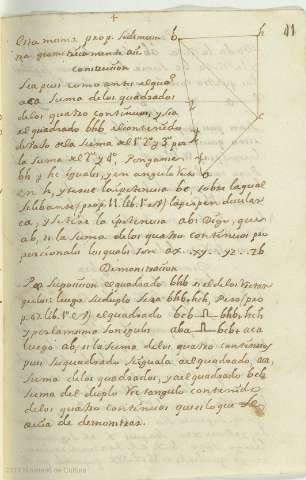 41
Esta misma prop. se demues
tra geometricamente así
Construcción
Sea pues como antes el qua.º
aca suma de los quadrados
de los quatro continuos, y sea
el quadrado bhb el contenido
de lado a la suma del 1.º 2.º y 3.º por
la suma del 2.º y 4.º. Pongamos
bh y hc iguales, y en angulo recto
en h, y tirese la ipotenusa bc, sobre la qual
se lebante (prop. 11. lib. 1.º) la perpendicular
ca, y se tire la ipotenusa ab: Digo, que
ab, es la suma de los quatro continuos pro
porcionales los quales son ax. xy. yz. zb
Demonstracion
Por suposicion el quadrado bhb es el de los rectan
gulos: luego su duplo sera bhb, hch, Pero (pro
p. 47. lib. 1.º) el quadrado bcb bhb, hch
y por la misma son iguales aba bcb, aca
luego ab, es la suma de los quatro continuos
pues su quadrado es igual a el quadrado aca,
suma de los quadrados, y a el quadrado bcb
suma del duplo rectangulo contenido
de los quatro continuos que es lo que se
avia de demonstrar.
b h
z
y
x
a c
2013 Ministerio de Cultura